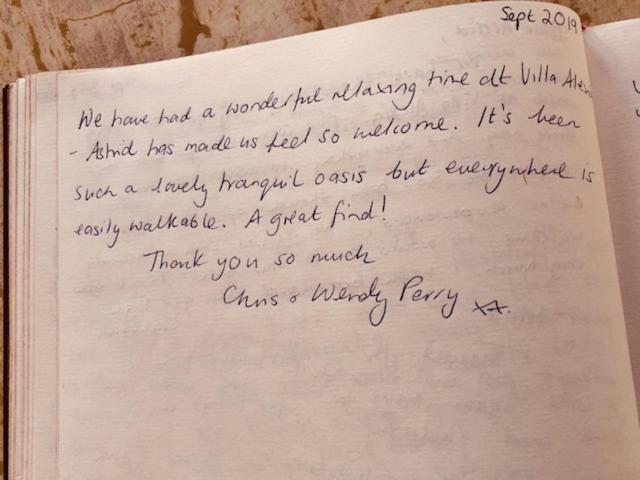 Sept 2019
We have had a wonderful relaxing time at Villa
- Astrid has made us feel so welcome. It's been
such a lovely tranquil oasis but everywhere is
easily walkable. A great find!
Thank you so much
Chris & Wendy Perry xx.